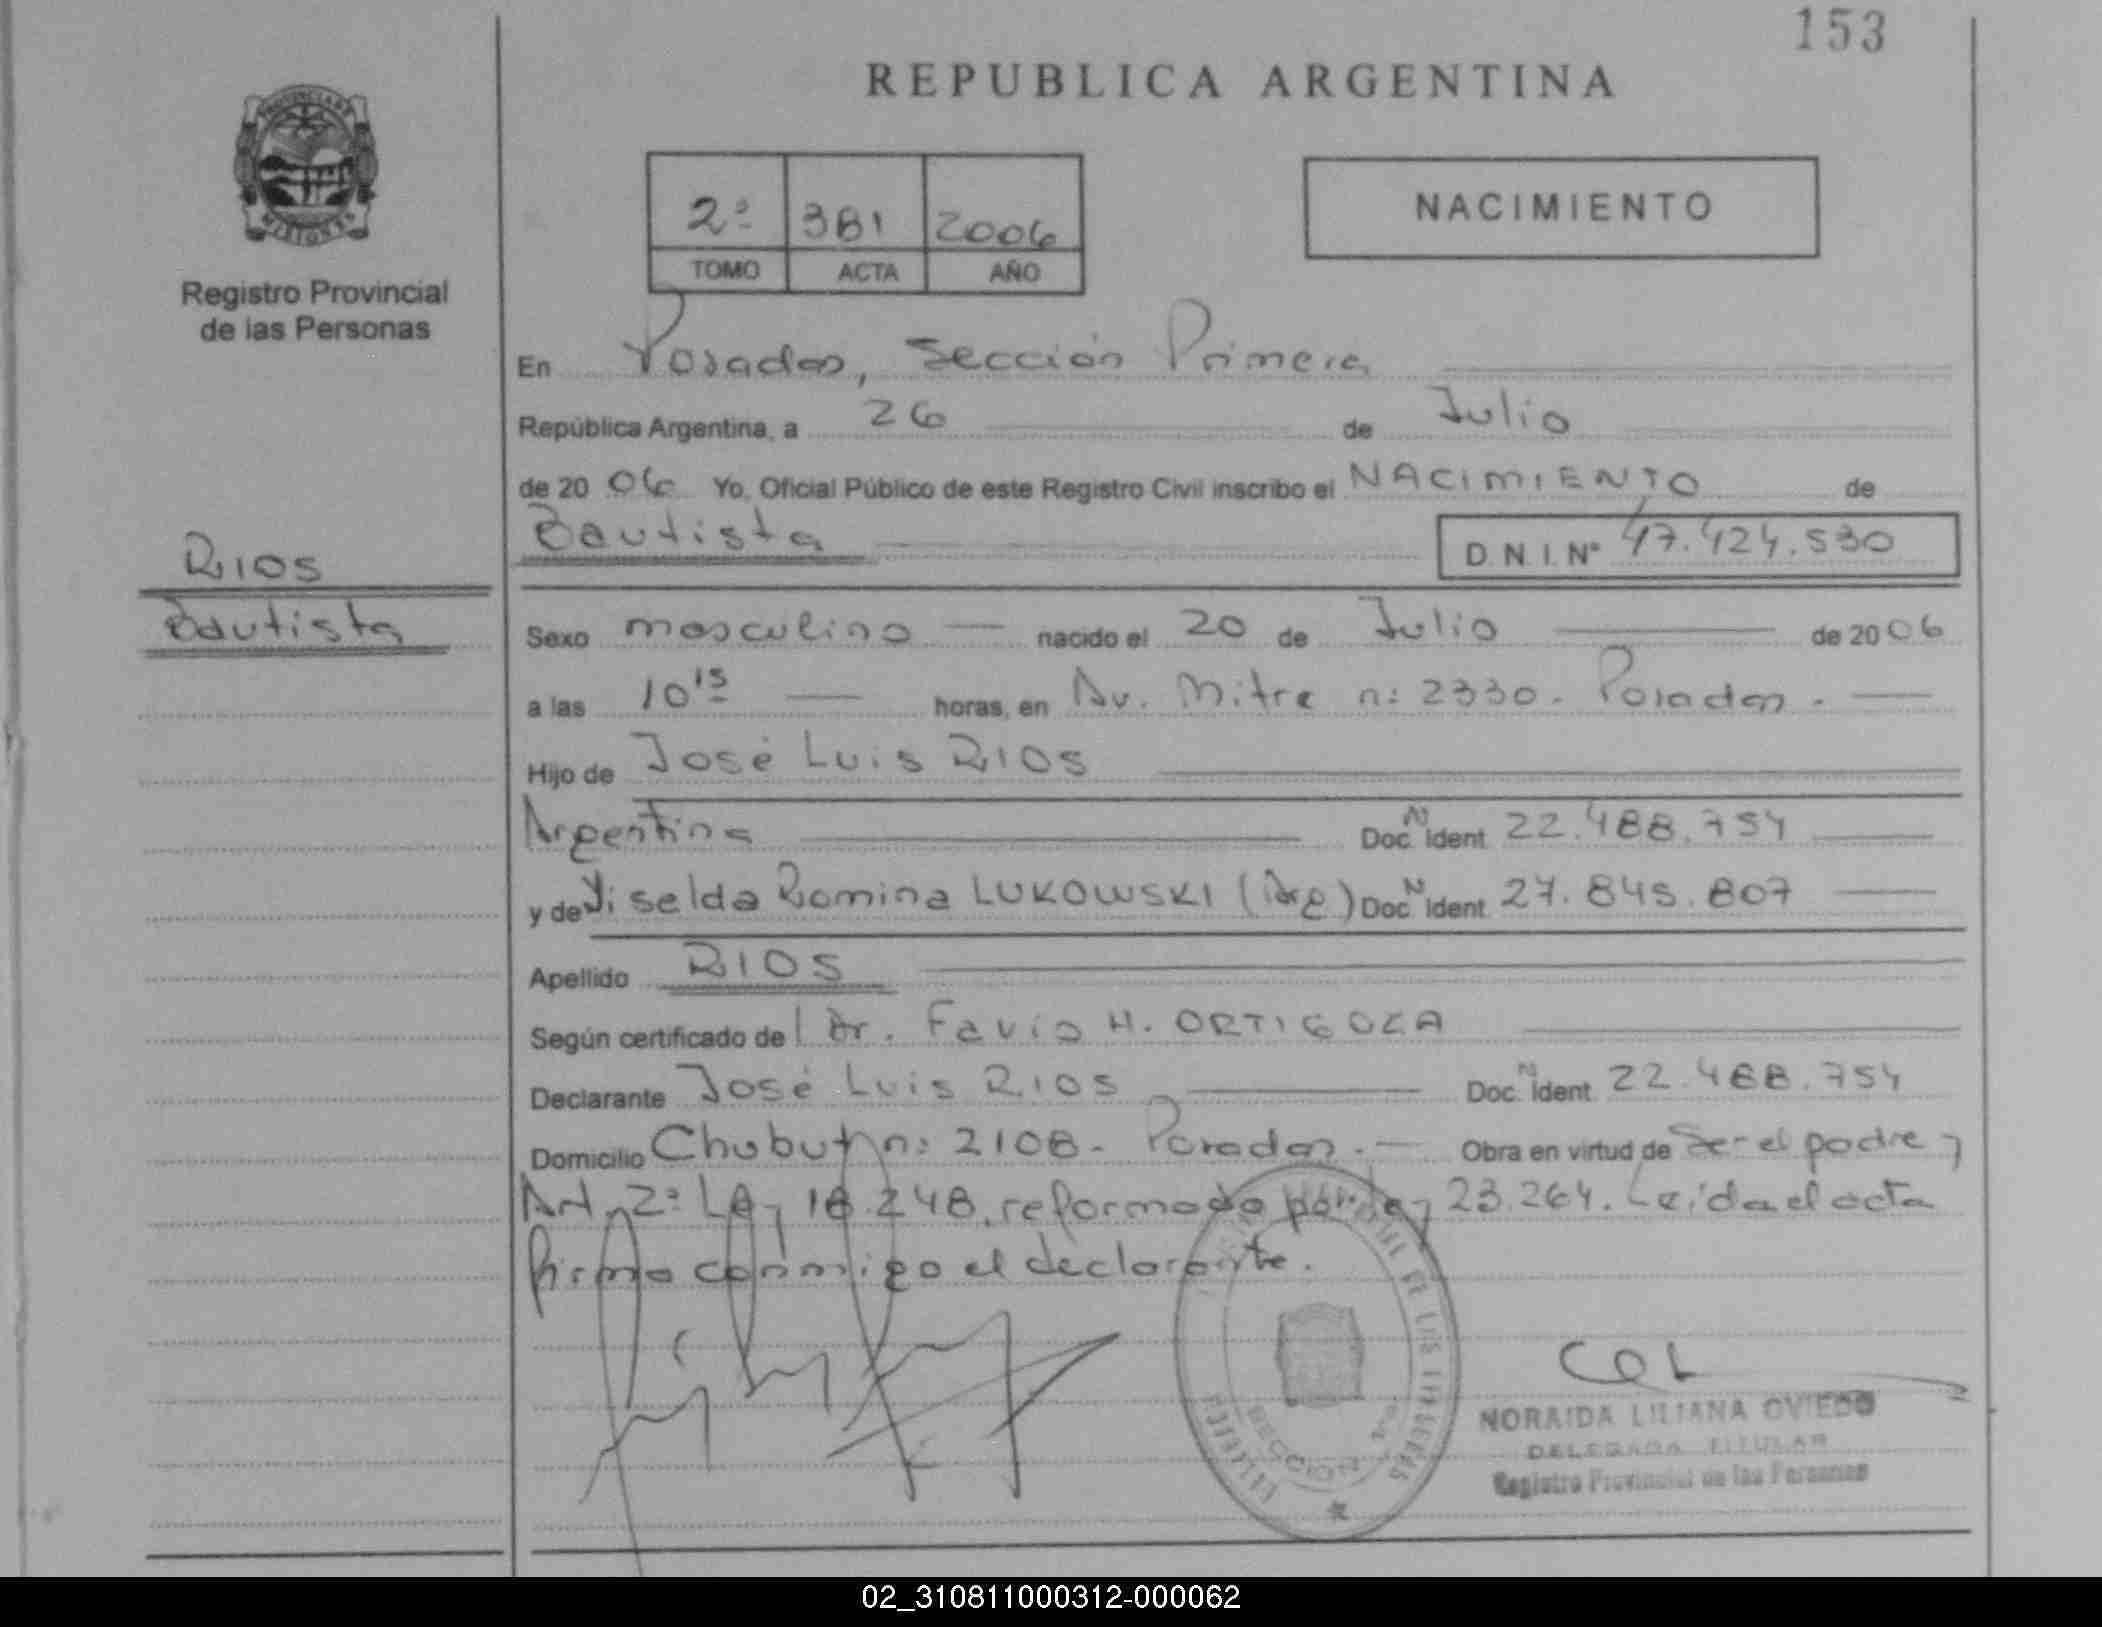 153
REPUBLICA ARGENTINA
PROVINCIA DE
MISIONES
Registro Provincial
de las Personas
2º 381 2006
TOMO ACTA AÑO
NACIMIENTO
En Posadas, Sección Primera
República Argentina, a 26 de Julio
de 2006 Yo, Oficial Público de este Registro Civil inscribo el NACIMIENTO de
Bautista D.N.I. Nº 47.424.530
RIOS
Bautista
Sexo masculino nacido el 20 de Julio de 2006
a las 10 15 horas, en Av. Mitre nº 2330. Posadas.
Hijo de José Luis RIOS
Argentina Doc. N Ident. 22.488.754
y de Romina LUKOWSKI (Arg) Doc. N Ident. 27.845.807
Apellido RIOS
Según certificado de Dr. Favio H. ORTIGOZA
Declarante José Luis RIOS Doc. N Ident. 22.488.754
Domicilio Chubut nº 2108. Posadas. Obra en virtud de Ser el padre y
Art. 2º Ley 18.248, reformado por Ley 23.264. Leída el acta
firma conmigo el declarante.
SECCION
NORAIDA LILIANA OVIEDO
DELEGADA TITULAR
Registro Provincial de las Personas
02_310811000312-000062